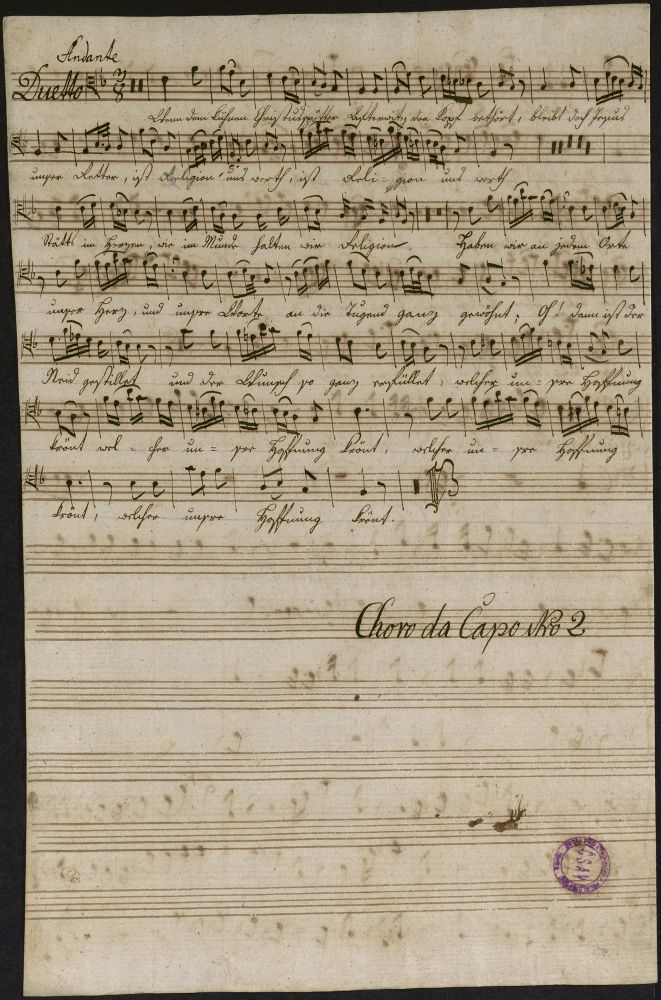 Andante
Duetto
Wenn dem kühnen Christusspötter Aftterwitz den Kopf bethört, bleibt doch Jesus
unser Retter, ist Religion uns werth, ist Reli- gion uns werth
Stätts im Herzen, wie im Munde halten wir Religion Haben wir an jedem Orte
unser Herz, und unsre Worte an die Tugend ganz gewöhnt, O! dann ist der
Neid gestillet und der Wunsch so ganz erfüllet, welcher un- sre Hoffnung
krönt wel- cher un- sre Hoffnung krönt, welcher un- sre Hoffnung
krönt, welcher unsre Hoffnung krönt.
Choro da Capo Nro 2